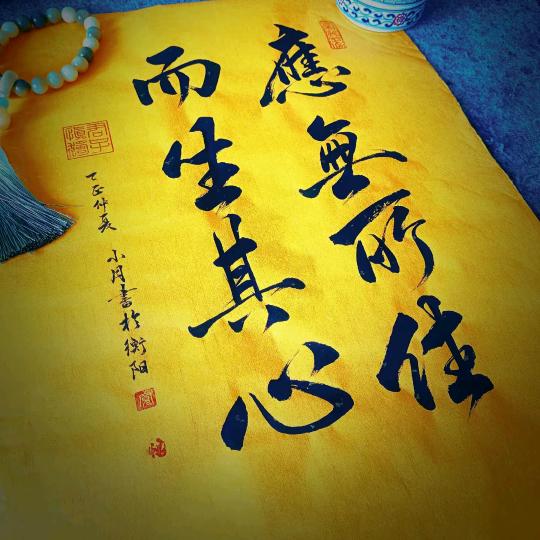 應無所住
而生其心
仲夏 小月書於衡阳